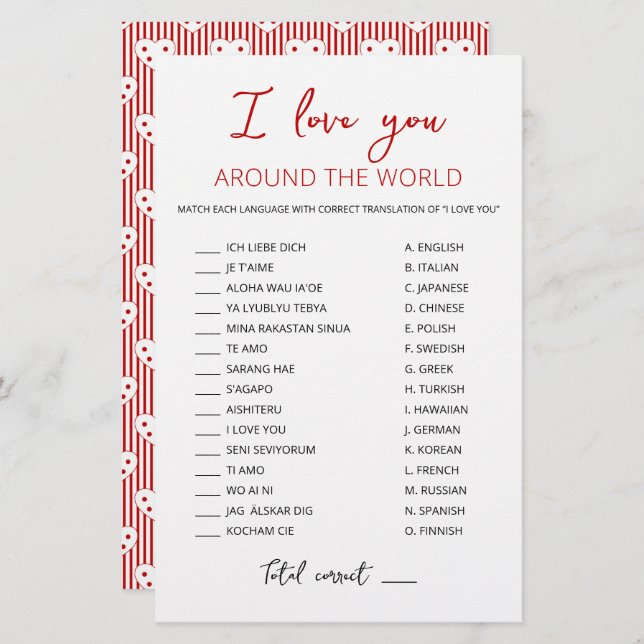 I love you
AROUND THE WORLD
MATCH EACH LANGUAGE WITH CORRECT TRANSLATION OF "I LOVE YOU"
____ ICH LIEBE DICH A. ENGLISH
____ JE T'AIME B. ITALIAN
____ ALOHA WAU IA'OE C. JAPANESE
____ YA LYUBLYU TEBYA D. CHINESE
____ MINA RAKASTAN SINUA E. POLISH
____ TE AMO F. SWEDISH
____ SARANG HAE G. GREEK
____ S'AGAPO H. TURKISH
____ AISHITERU I. HAWAIIAN
____ I LOVE YOU J. GERMAN
____ SENI SEVIYORUM K. KOREAN
____ TI AMO L. FRENCH
____ WO AI NI M. RUSSIAN
____ JAG ÄLSKAR DIG N. SPANISH
____ KOCHAM CIE O. FINNISH
Total correct ____